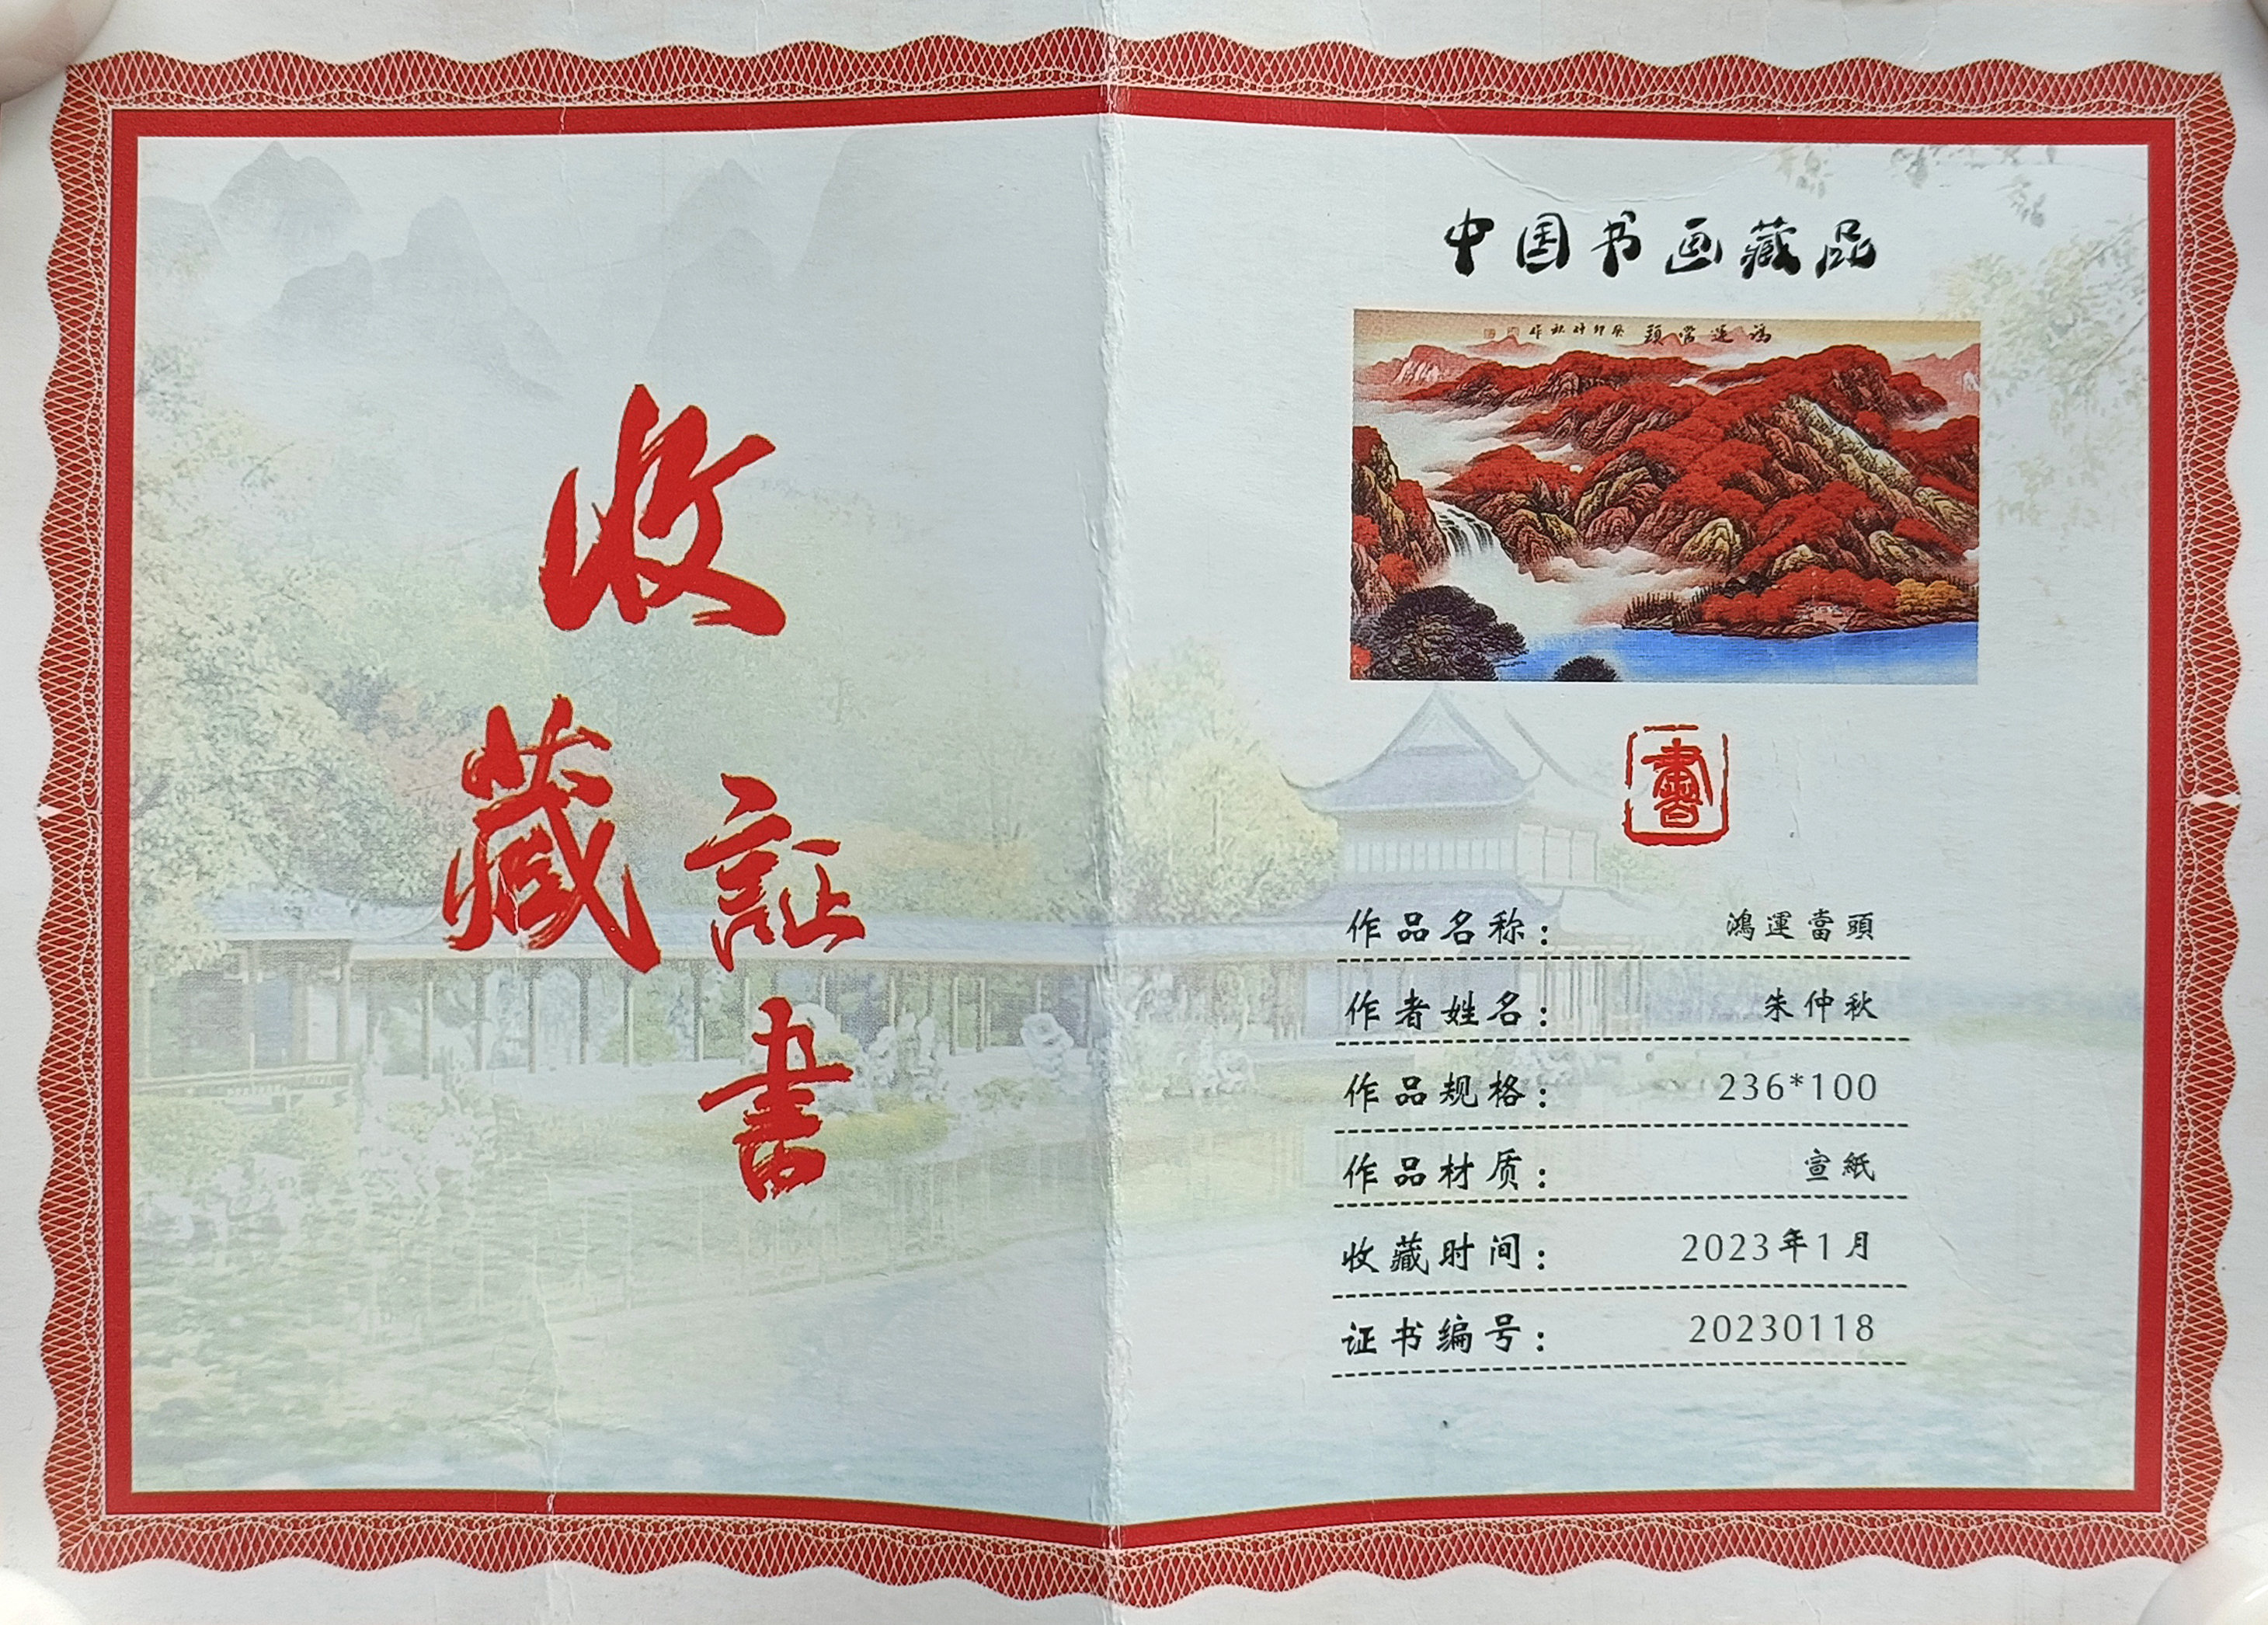 收藏証書
中国书画藏品
鴻運當頭 癸卯仲秋作
畫
作品名称： 鴻運當頭
作者姓名： 朱仲秋
作品规格： 236*100
作品材质： 宣紙
收藏时间： 2023年1月
证书编号： 20230118